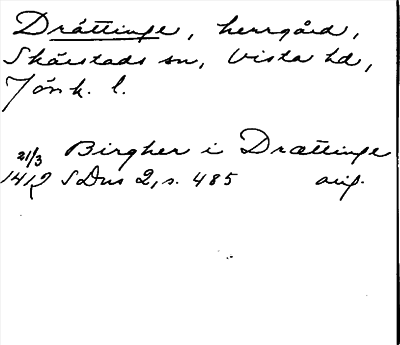 Dráttinge, herrgård,
Skärstads sn, Vista hd,
Jönk. l.
21/3 Birgher i Drættinge
1412 SDns 2, s. 485 orig.